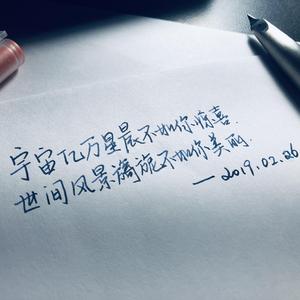 宇宙亿万星晨不如你惊喜.
世间风景旖旎不如你美丽.
— 2019.02.26